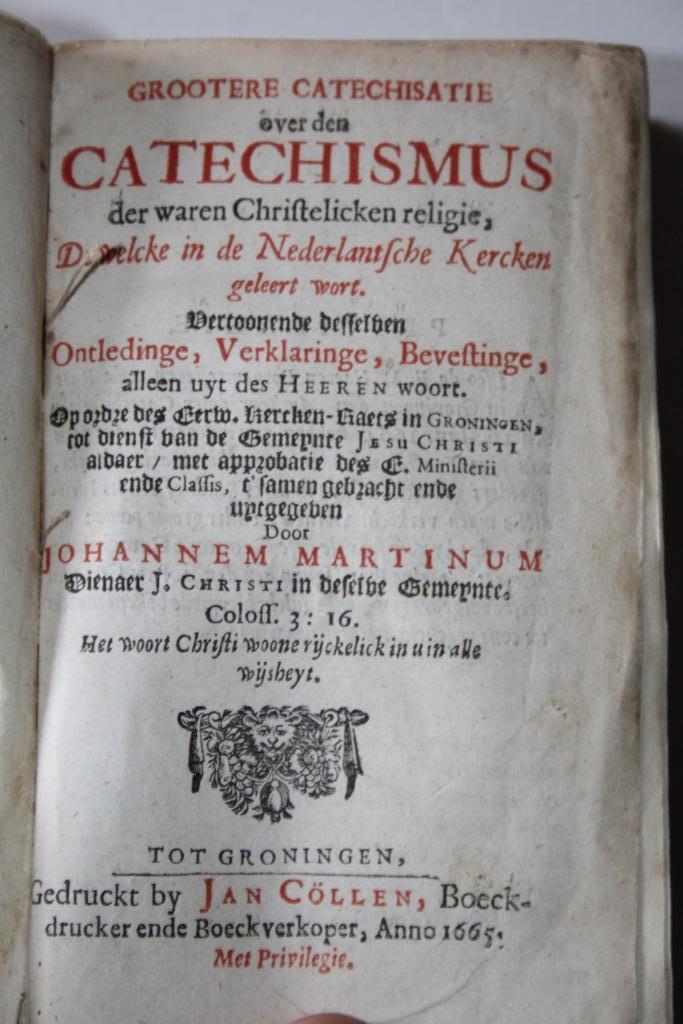 GROOTERE CATECHISATIE
over den
CATECHISMUS
der waren Chriſtelicken religie,
Dewelcke in de Nederlantſche Kercken
geleert wort.
Vertoonende deſſelven
Ontledinge, Verklaringe, Beveſtinge,
alleen uyt des HEEREN woort.
Op ordre des Eerw. Kercken-Raets in GRONINGEN,
tot dienſt van de Gemeynte JESU CHRISTI
aldaer / met approbatie des E. Miniſterii
ende Claſſis, t'ſamen gebracht ende
uytgegeven
Door
JOHANNEM MARTINUM
Dienaer J. CHRISTI in deſelve Gemeynte.
Coloſſ. 3: 16.
Het woort Chriſti woone rijckelick in u in alle
wijsheyt.
TOT GRONINGEN,
Gedruckt by JAN CÖLLEN, Boeck-
drucker ende Boeckverkoper, Anno 1665.
Met Privilegie.